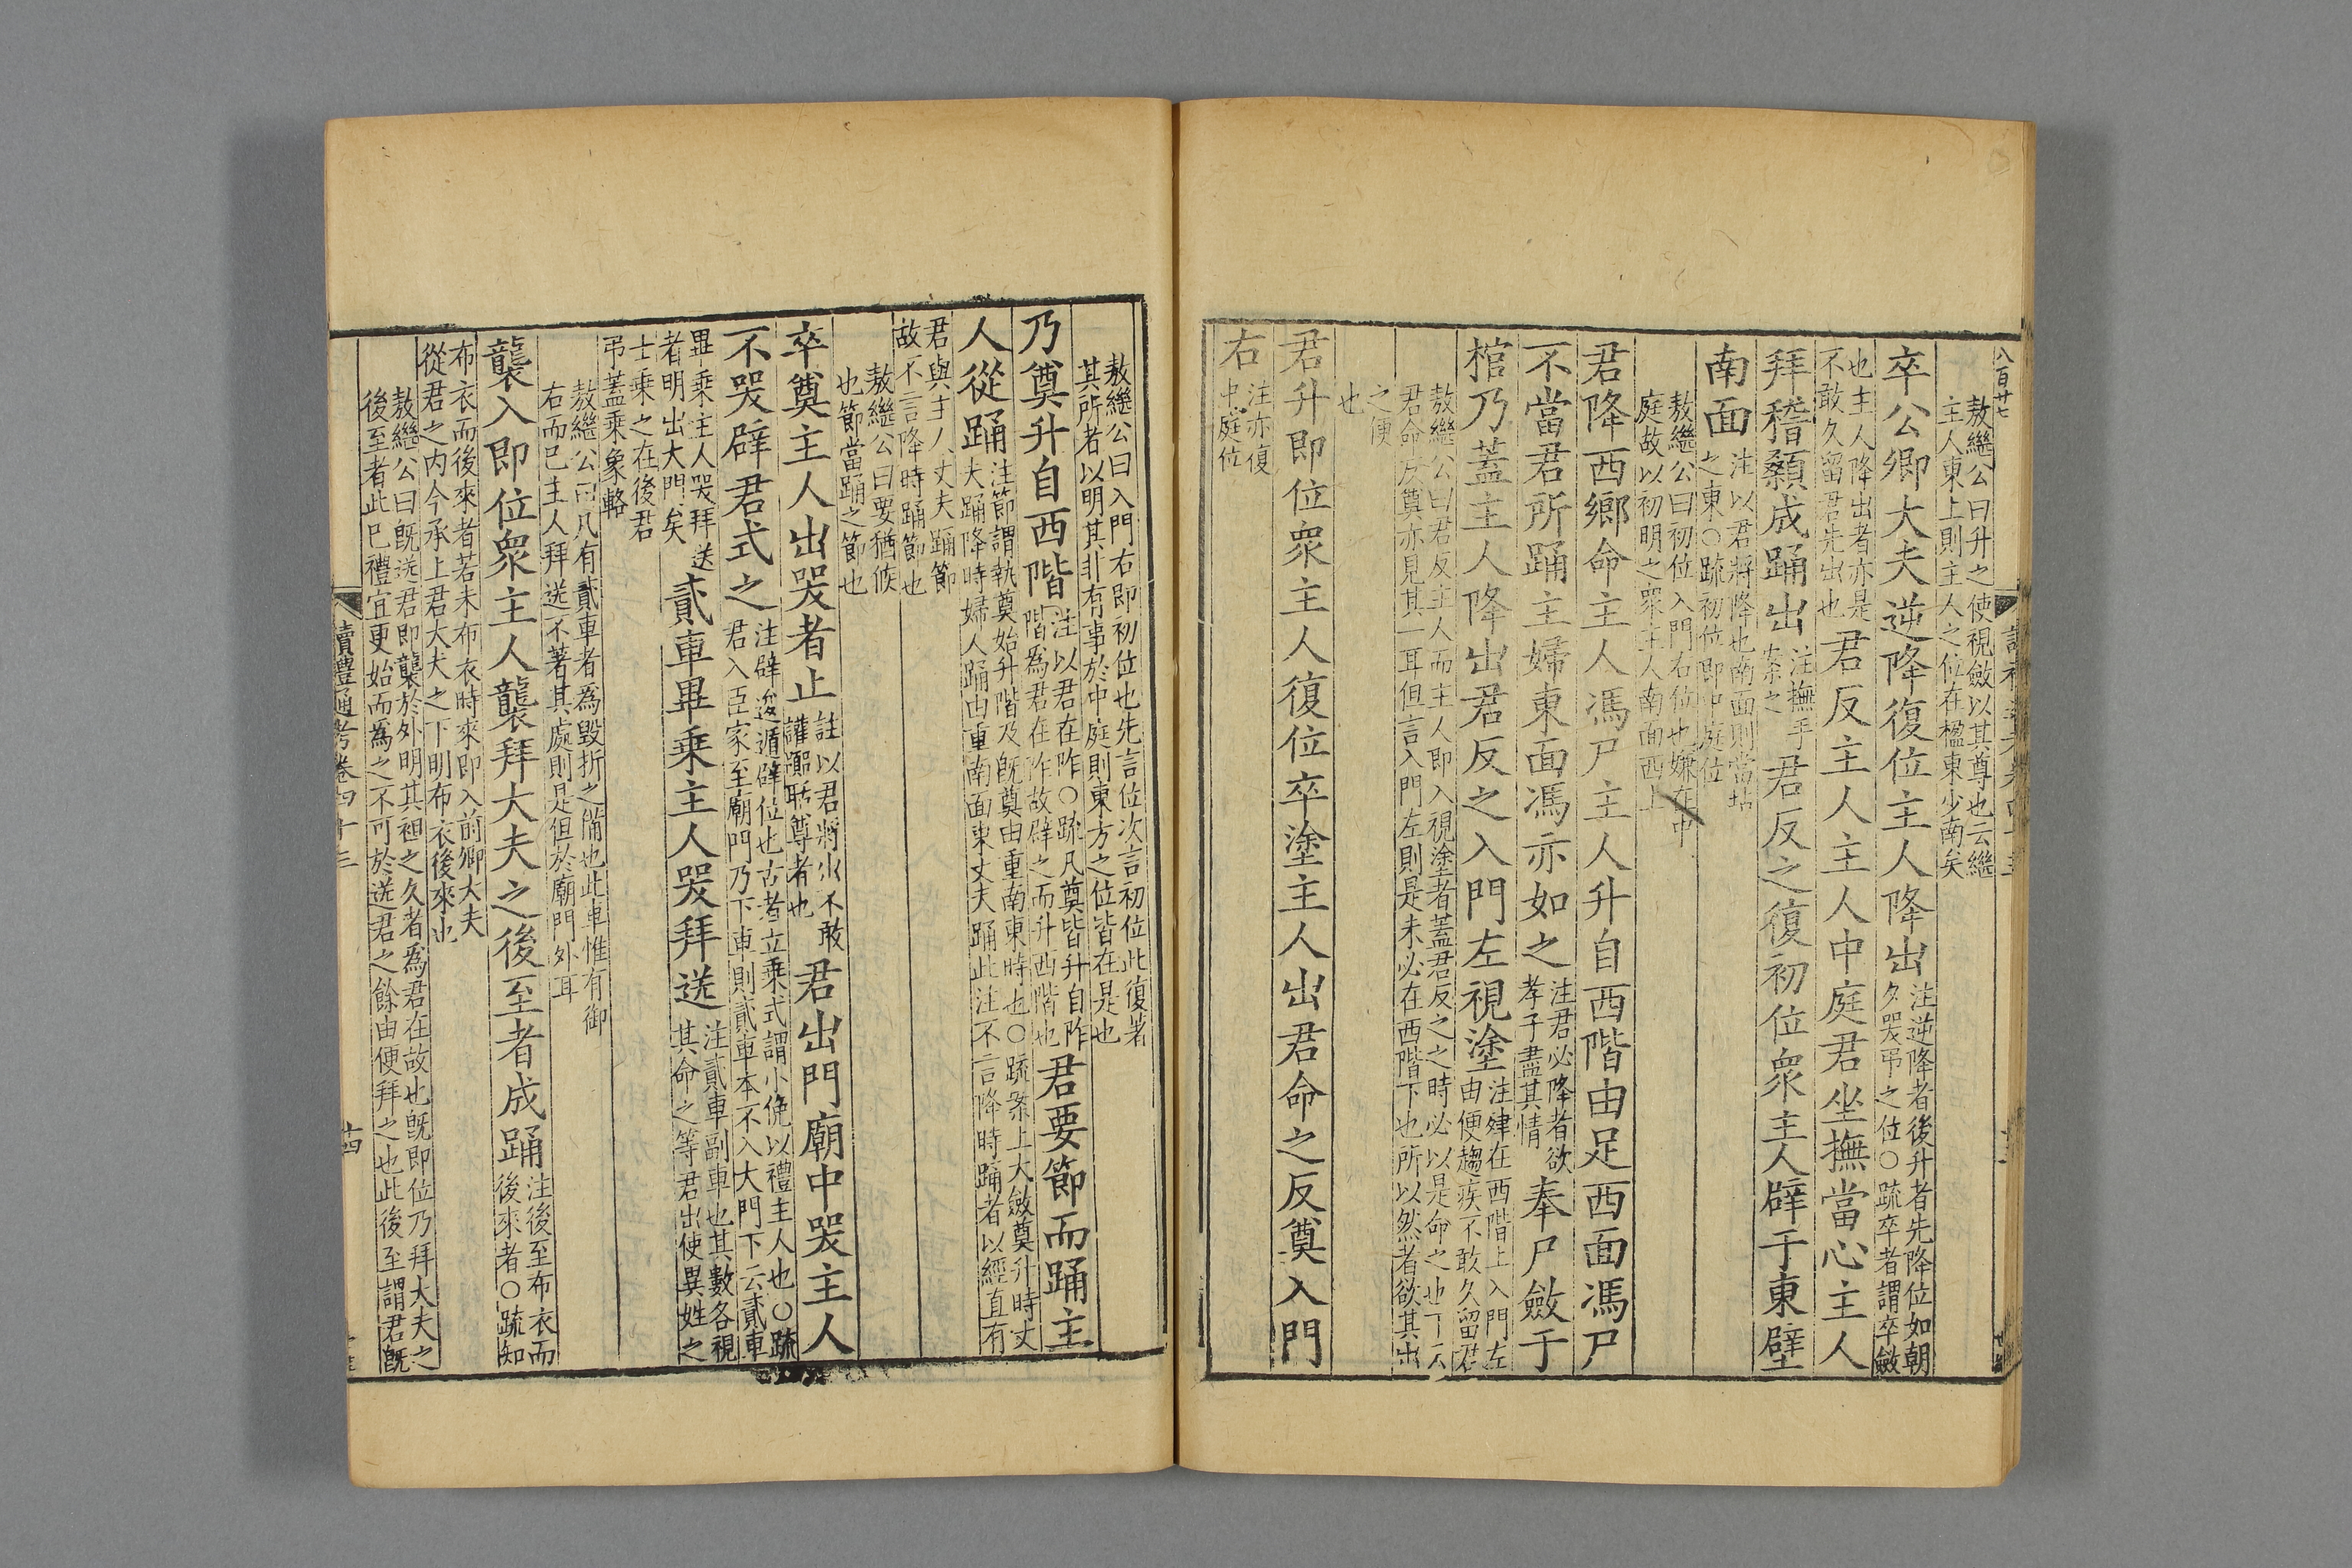 八百廿七
敖繼公曰升之使視斂以其尊也云繼
主人東上則主人之位在楹東少南矣
卒公卿大夫逆降復位主人降出注逆降者後升者先降位如朝
夕哭弔之位○疏卒者謂卒斂
也主人降出者亦是
不敢久留君先出也君反主人主人中庭君坐撫當心主人
拜稽顙成踊出注撫手
案之君反之復初位衆主人辟于東壁
南面注以君將降也南面則當坫
之東○疏初位即中庭位
敖繼公曰初位入門右位也嫌在中
庭故以初明之衆主人南面西上
君降西鄉命主人馮尸主人升自西階由足西面馮尸
不當君所踊主婦東面馮亦如之注君必降者欲
孝子盡其情奉尸斂于
棺乃蓋主人降出君反之入門左視塗注肂在西階上入門左
由便趨疾不敢久留君
敖繼公曰君反主人而主人即入視塗者蓋君反之之時必以是命之也下云
君命反奠亦見其一耳但言入門左則是未必在西階下也所以然者欲其出
之便
也
君升即位衆主人復位卒塗主人出君命之反奠入門
右注亦復
中庭位
敖繼公曰入門右即初位也先言位次言初位此復著
其所者以明其非有事於中庭則東方之位皆在是也
乃奠升自西階注以君在阼○疏凡奠皆升自阼
階爲君在阼故辟之而升西階也君要節而踊主
人從踊注節謂執奠始升階及旣奠由重南東時也○疏案上大斂奠升時丈
夫踊降時婦人踊由重南面東丈夫踊此注不言降時踊者以經直有
君與主人丈夫踊節
故不言降時踊節也
敖繼公曰要猶候
也節當踊之節也
卒奠主人出哭者止註以君將出不敢
讙囂聒尊者也君出門廟中哭主人
不哭辟君式之注辟逡遁辟位也古者立乘式謂小俛以禮主人也○疏
君入臣家至廟門乃下車則貳車本不入大門下云貳車
畢乘主人哭拜送
者明出大門矣貳車畢乘主人哭拜送注貳車副車也其數各視
其命之等君出使異姓之
士乘之在後君
弔蓋乘象輅
敖繼公曰凡有貳車者爲毀折之備也此車惟有御
右而已主人拜送不著其處則是但於廟門外耳
襲入即位衆主人襲拜大夫之後至者成踊注後至布衣而
後來者○疏知
布衣而後來者若未布衣時來即入前卿大夫
從君之內今承上君大夫之下明布衣後來也
敖繼公曰旣送君即襲於外明其袒之久者爲君在故也旣即位乃拜大夫之
後至者此巳禮宜更始而爲之不可於送君之餘由便拜之也此後至謂君旣
讀禮通考卷四十三
十四